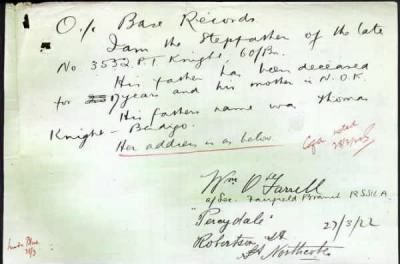 O/c Base Records
I am the Stepfather of the late
No 3532 P.T. Knight, 60/Bn.
His father has been deceased
for 17 years and his mother is N.O.K.
His fathers name was Thomas
Knight - Bendigo.
Her address is as below.
noted
28/3/22
Wm O'Farrell
a/Sec. Fairfield Branch R.S.S.I.L.A.
"Percydale"
27/3/22
Robertson St
Northcote
28/3